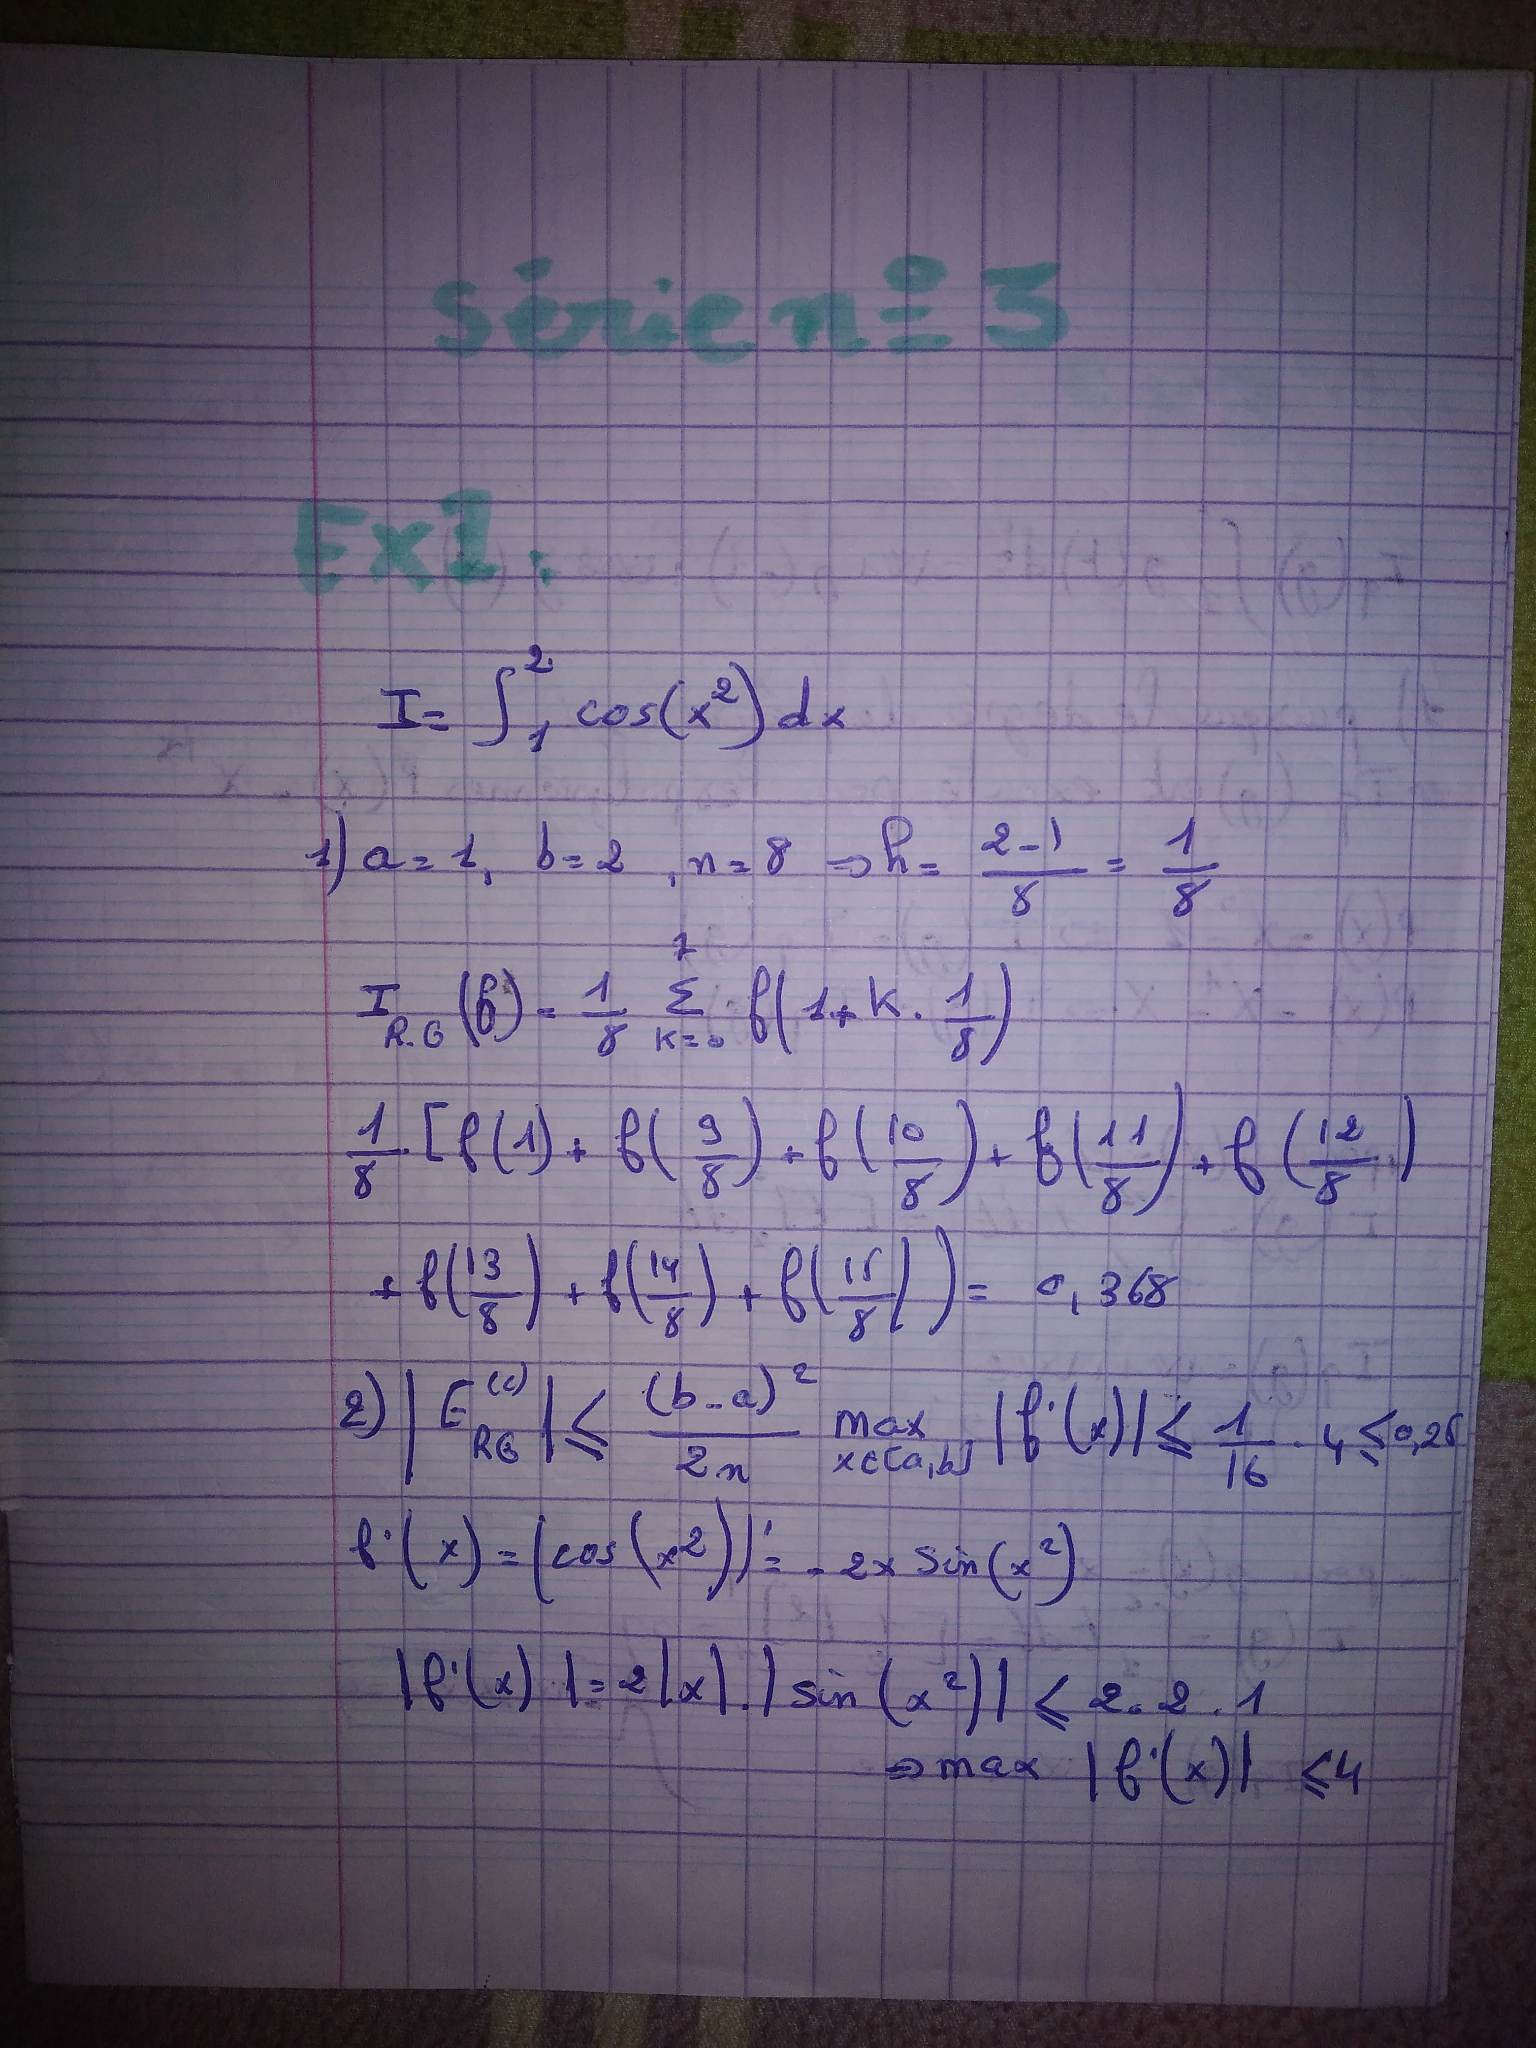 Série n° 3
Ex1:
I = ∫₁² cos(x²) dx
1) a = 1, b = 2, n = 8 → h = (2-1)/8 = 1/8
I_R.G (f) = 1/8 Σ_{k=0}^{7} f(1 + k · 1/8)
1/8 · [f(1) + f(9/8) + f(10/8) + f(11/8) + f(12/8)
+ f(13/8) + f(14/8) + f(15/8)) = 0,368
2) |E_RG^(c)| ≤ (b-a)²/2n max_{x∈[a,b]} |f'(x)| ≤ 1/16 · 4 ≤ 0,25
f'(x) = (cos(x²))' = -2x sin(x²)
|f'(x)| = 2|x| · |sin(x²)| ≤ 2 · 2 · 1
⇒ max |f'(x)| ≤ 4